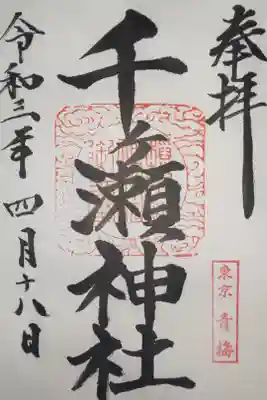 奉拝
東京 青梅
千ヶ瀬神社
令和三年 四月十八日